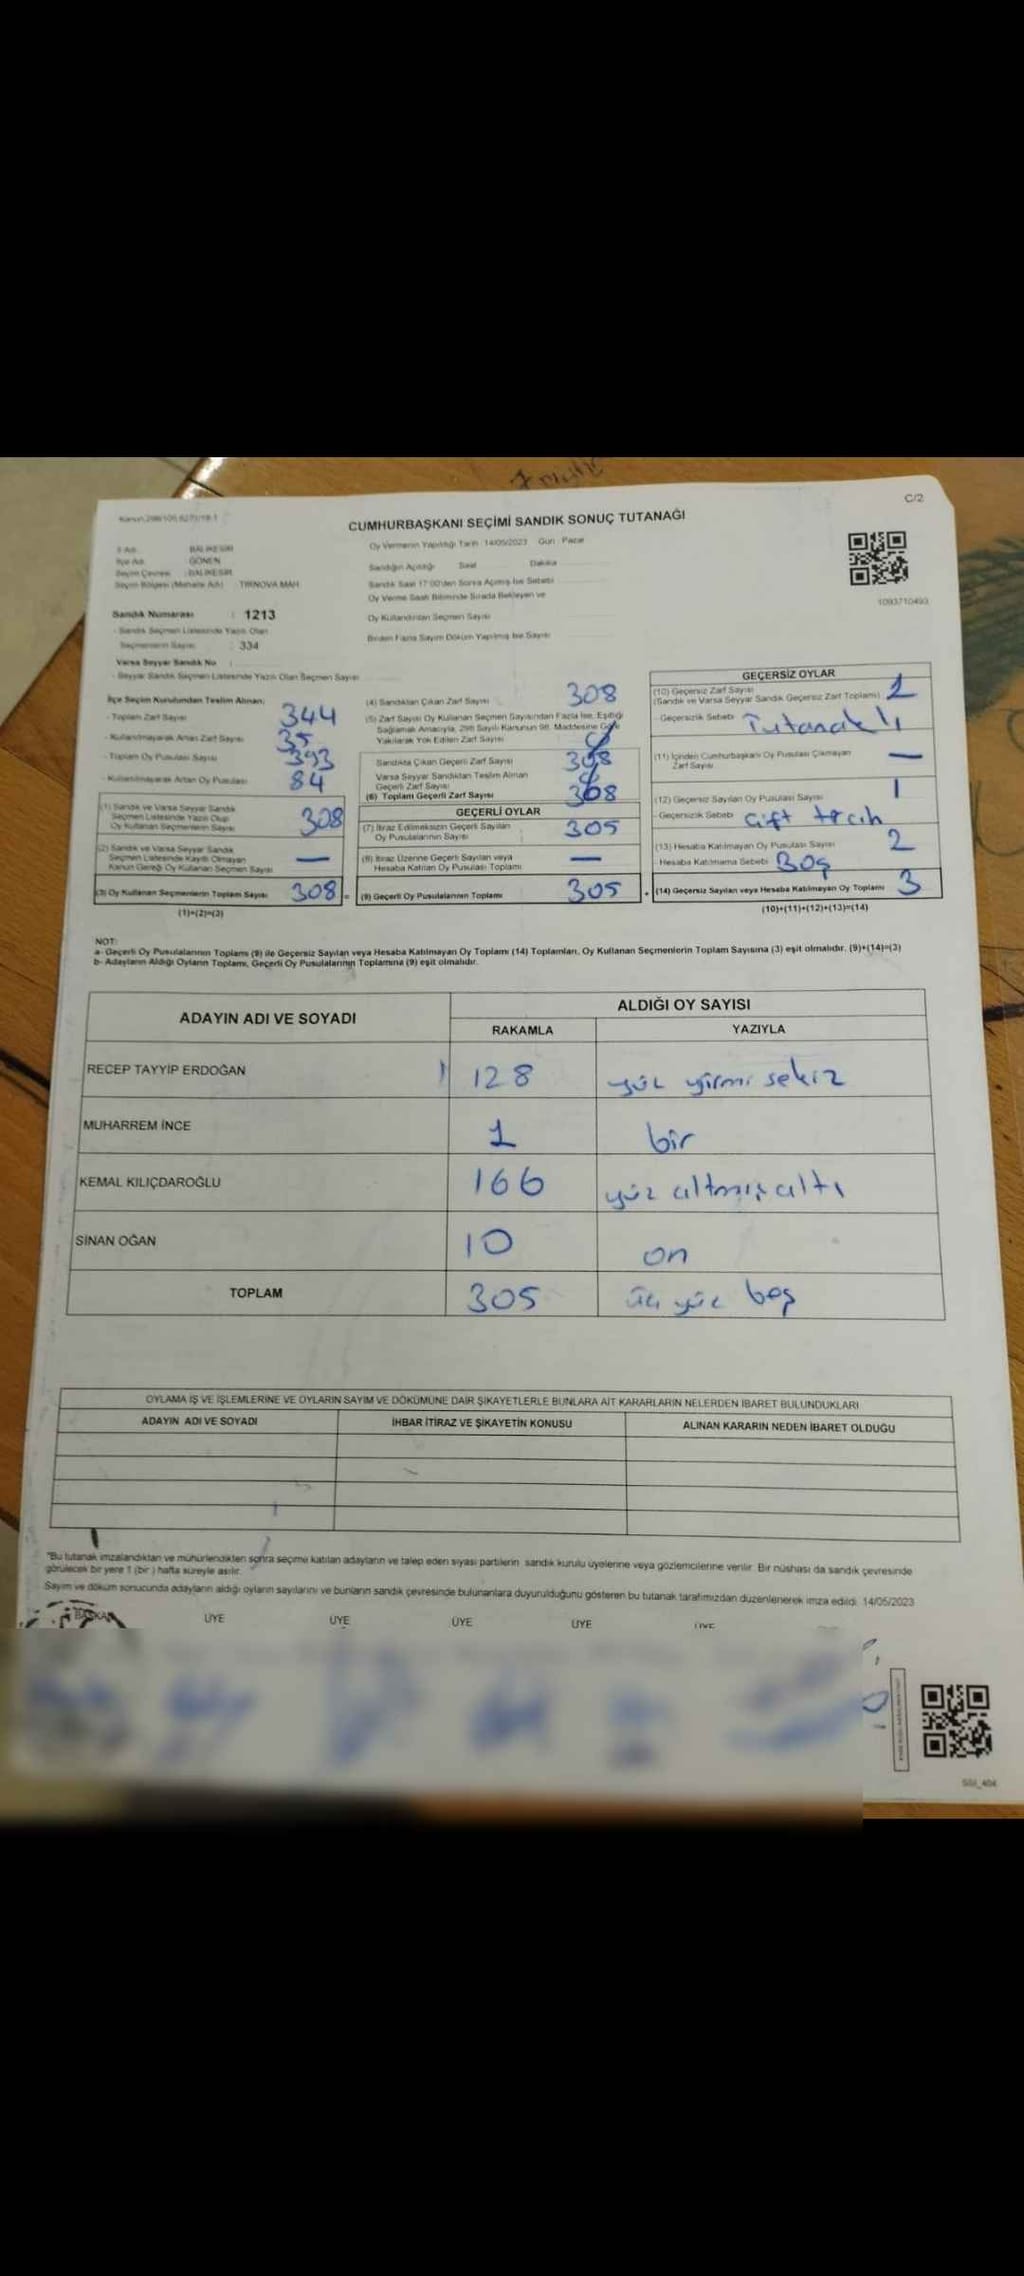 C/2
CUMHURBAŞKANI SEÇİMİ SANDIK SONUÇ TUTANAĞI
İl Adı : BALIKESİR
İlçe Adı : GÖNEN
Seçim Çevresi : BALIKESİR
Seçim Bölgesi (Mahalle Adı) : TIRNOVA MAH.
Sandık Numarası : 1213
- Sandık Seçmen Listesinde Yazılı Olan
Seçmenlerin Sayısı : 334
Varsa Seyyar Sandık No :
- Seyyar Sandık Seçmen Listesinde Yazılı Olan Seçmen Sayısı
Oy Vermenin Yapıldığı Tarih : 14/05/2023 Gün : Pazar
Sandığın Açıldığı Saat Dakika
Sandık Saat 17:00'den Sonra Açılmış İse Sebebi
Oy Verme Saati Bitiminde Sırada Bekleyen ve
Oy Kullandırılan Seçmen Sayısı
Birden Fazla Sayım Döküm Yapılmış İse Sayısı
1093710493
İlçe Seçim Kurulundan Teslim Alınan;
- Toplam Zarf Sayısı 344
- Kullanılmayarak Artan Zarf Sayısı 35
- Toplam Oy Pusulası Sayısı 393
- Kullanılmayarak Artan Oy Pusulası 84
(1) Sandık ve Varsa Seyyar Sandık
Seçmen Listesinde Yazılı Olup
Oy Kullanan Seçmenlerin Sayısı 308
(2) Sandık ve Varsa Seyyar Sandık
Seçmen Listesinde Kayıtlı Olmayan
Kanun Gereği Oy Kullanan Seçmen Sayısı —
(3) Oy Kullanan Seçmenlerin Toplam Sayısı 308 =
(1)+(2)=(3)
(4) Sandıktan Çıkan Zarf Sayısı 308
(5) Zarf Sayısı Oy Kullanan Seçmen Sayısından Fazla İse, Eşitliği
Sağlamak Amacıyla, 298 Sayılı Kanunun 98. Maddesine Göre
Yakılarak Yok Edilen Zarf Sayısı
Sandıkta Çıkan Geçerli Zarf Sayısı 308
Varsa Seyyar Sandıktan Teslim Alınan
Geçerli Zarf Sayısı
(6) Toplam Geçerli Zarf Sayısı 308
GEÇERLİ OYLAR
(7) İtiraz Edilmeksizin Geçerli Sayılan
Oy Pusulalarının Sayısı 305
(8) İtiraz Üzerine Geçerli Sayılan veya
Hesaba Katılan Oy Pusulası Toplamı —
(9) Geçerli Oy Pusulalarının Toplamı 305 +
GEÇERSİZ OYLAR
(10) Geçersiz Zarf Sayısı
(Sandık ve Varsa Seyyar Sandık Geçersiz Zarf Toplamı) 1
- Geçersizlik Sebebi Tutanaklı
(11) İçinden Cumhurbaşkanı Oy Pusulası Çıkmayan
Zarf Sayısı —
(12) Geçersiz Sayılan Oy Pusulası Sayısı 1
- Geçersizlik Sebebi Çift tercih
(13) Hesaba Katılmayan Oy Pusulası Sayısı 2
- Hesaba Katılmama Sebebi Boş
(14) Geçersiz Sayılan veya Hesaba Katılmayan Oy Toplamı 3
(10)+(11)+(12)+(13)=(14)
NOT:
a- Geçerli Oy Pusulalarının Toplamı (9) ile Geçersiz Sayılan veya Hesaba Katılmayan Oy Toplamı (14) Toplamları, Oy Kullanan Seçmenlerin Toplam Sayısına (3) eşit olmalıdır. (9)+(14)=(3)
b- Adayların Aldığı Oyların Toplamı, Geçerli Oy Pusulalarının Toplamına (9) eşit olmalıdır.
ADAYIN ADI VE SOYADI
ALDIĞI OY SAYISI
RAKAMLA YAZIYLA
RECEP TAYYİP ERDOĞAN 128 yüz yirmi sekiz
MUHARREM İNCE 1 bir
KEMAL KILIÇDAROĞLU 166 yüz altmış altı
SİNAN OĞAN 10 on
TOPLAM 305 üç yüz beş
OYLAMA İŞ VE İŞLEMLERİNE VE OYLARIN SAYIM VE DÖKÜMÜNE DAİR ŞİKAYETLERLE BUNLARA AİT KARARLARIN NELERDEN İBARET BULUNDUKLARI
ADAYIN ADI VE SOYADI İHBAR İTİRAZ VE ŞİKAYETİN KONUSU ALINAN KARARIN NEDEN İBARET OLDUĞU
"Bu tutanak imzalandıktan ve mühürlendikten sonra seçime katılan adayların ve talep eden siyasi partilerin sandık kurulu üyelerine veya gözlemcilerine verilir. Bir nüshası da sandık çevresinde
görülecek bir yere 1 (bir) hafta süreyle asılır.
Sayım ve döküm sonucunda adayların aldığı oyların sayılarını ve bunların sandık çevresinde bulunanlara duyurulduğunu gösteren bu tutanak tarafımızdan düzenlenerek imza edildi. 14/05/2023
BAŞKAN ÜYE ÜYE ÜYE ÜYE ÜYE